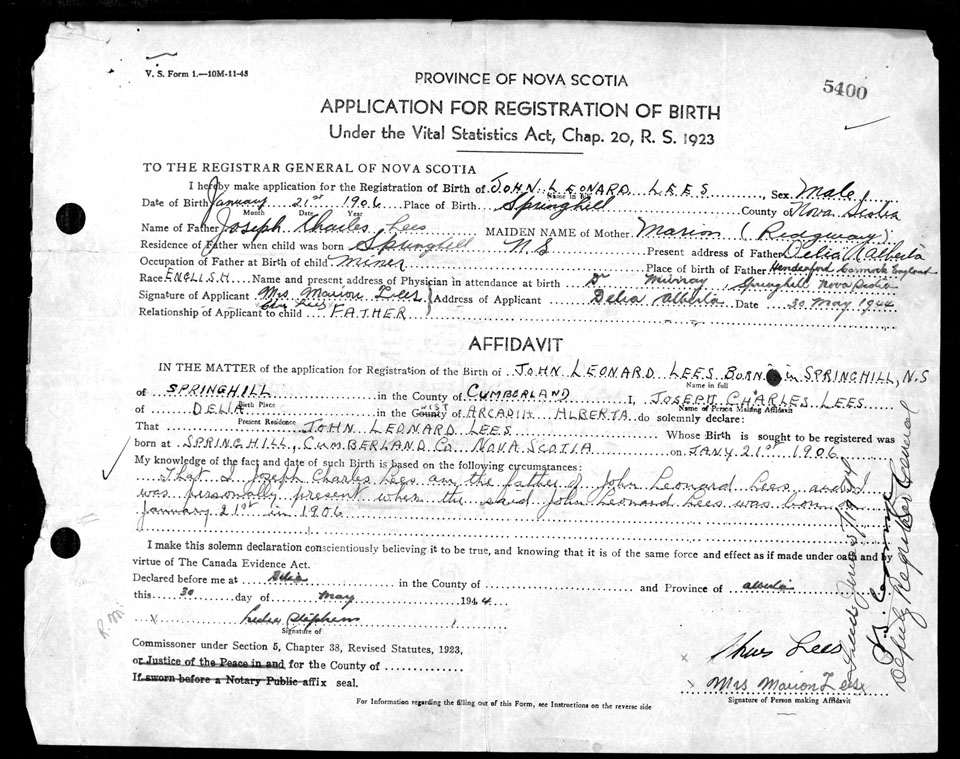 V. S. Form 1.—10M-11-43
PROVINCE OF NOVA SCOTIA
5400
APPLICATION FOR REGISTRATION OF BIRTH
Under the Vital Statistics Act, Chap. 20, R. S. 1923
TO THE REGISTRAR GENERAL OF NOVA SCOTIA
I hereby make application for the Registration of Birth of JOHN LEONARD LEES, Sex Male
Name in full
Date of Birth January 21st 1906 Place of Birth Springhill County of Nova Scotia
Month Date Year
Name of Father Joseph Charles Lees MAIDEN NAME of Mother Marion (Ridgway)
Residence of Father when child was born Springhill N S Present address of Father Delia Alberta
Occupation of Father at Birth of child miner Place of Birth of Father England
Race ENGLISH Name and present address of Physician in attendance at birth Dr Murray, Springhill Nova Scotia
Signature of Applicant Mrs Marion Lees Address of Applicant Delia Alberta Date 30 May 1944
Chas Lees
Relationship of Applicant to child FATHER
AFFIDAVIT
IN THE MATTER of the application for Registration of the Birth of JOHN LEONARD LEES BORN in SPRINGHILL, N.S
Name in full
of SPRINGHILL in the County of CUMBERLAND I, JOSEPH CHARLES LEES
Birth Place Name of Person Making Affidavit
of DELIA in the County of ALBERTA do solemnly declare:
Present Residence
That JOHN LEONARD LEES Whose Birth is sought to be registered was
born at SPRINGHILL, CUMBERLAND Co NOVA SCOTIA on JANY 21st 1906
My knowledge of the fact and date of such Birth is based on the following circumstances:
That I Joseph Charles Lees am the father of John Leonard Lees and I
was personally present when the said John Leonard Lees was born on
January 21st in 1906
I make this solemn declaration conscientiously believing it to be true, and knowing that it is of the same force and effect as if made under oath and by
virtue of The Canada Evidence Act.
Declared before me at Delia in the County of and Province of Alberta
this 30 day of May 1944
Signature of
Commissioner under Section 5, Chapter 38, Revised Statutes, 1923,
or Justice of the Peace in and for the County of
If sworn before a Notary Public affix seal.
Chas Lees
Mrs Marion Lees
Signature of Person making Affidavit
For Information regarding the filling out of this Form, see Instructions on the reverse side
Deputy Registrar General
R.M.